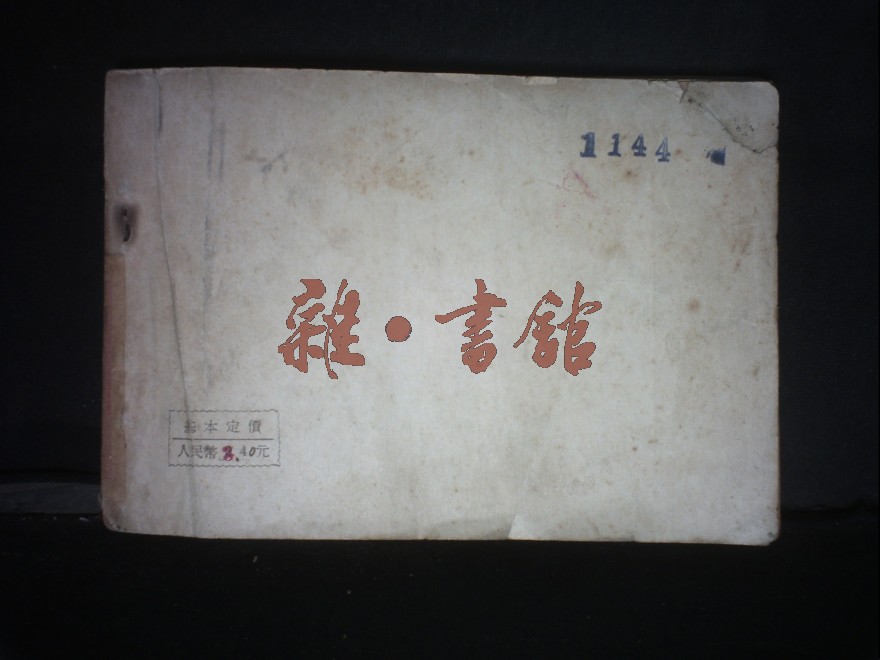 1144
雜·書館
每本定價
人民幣3.40元